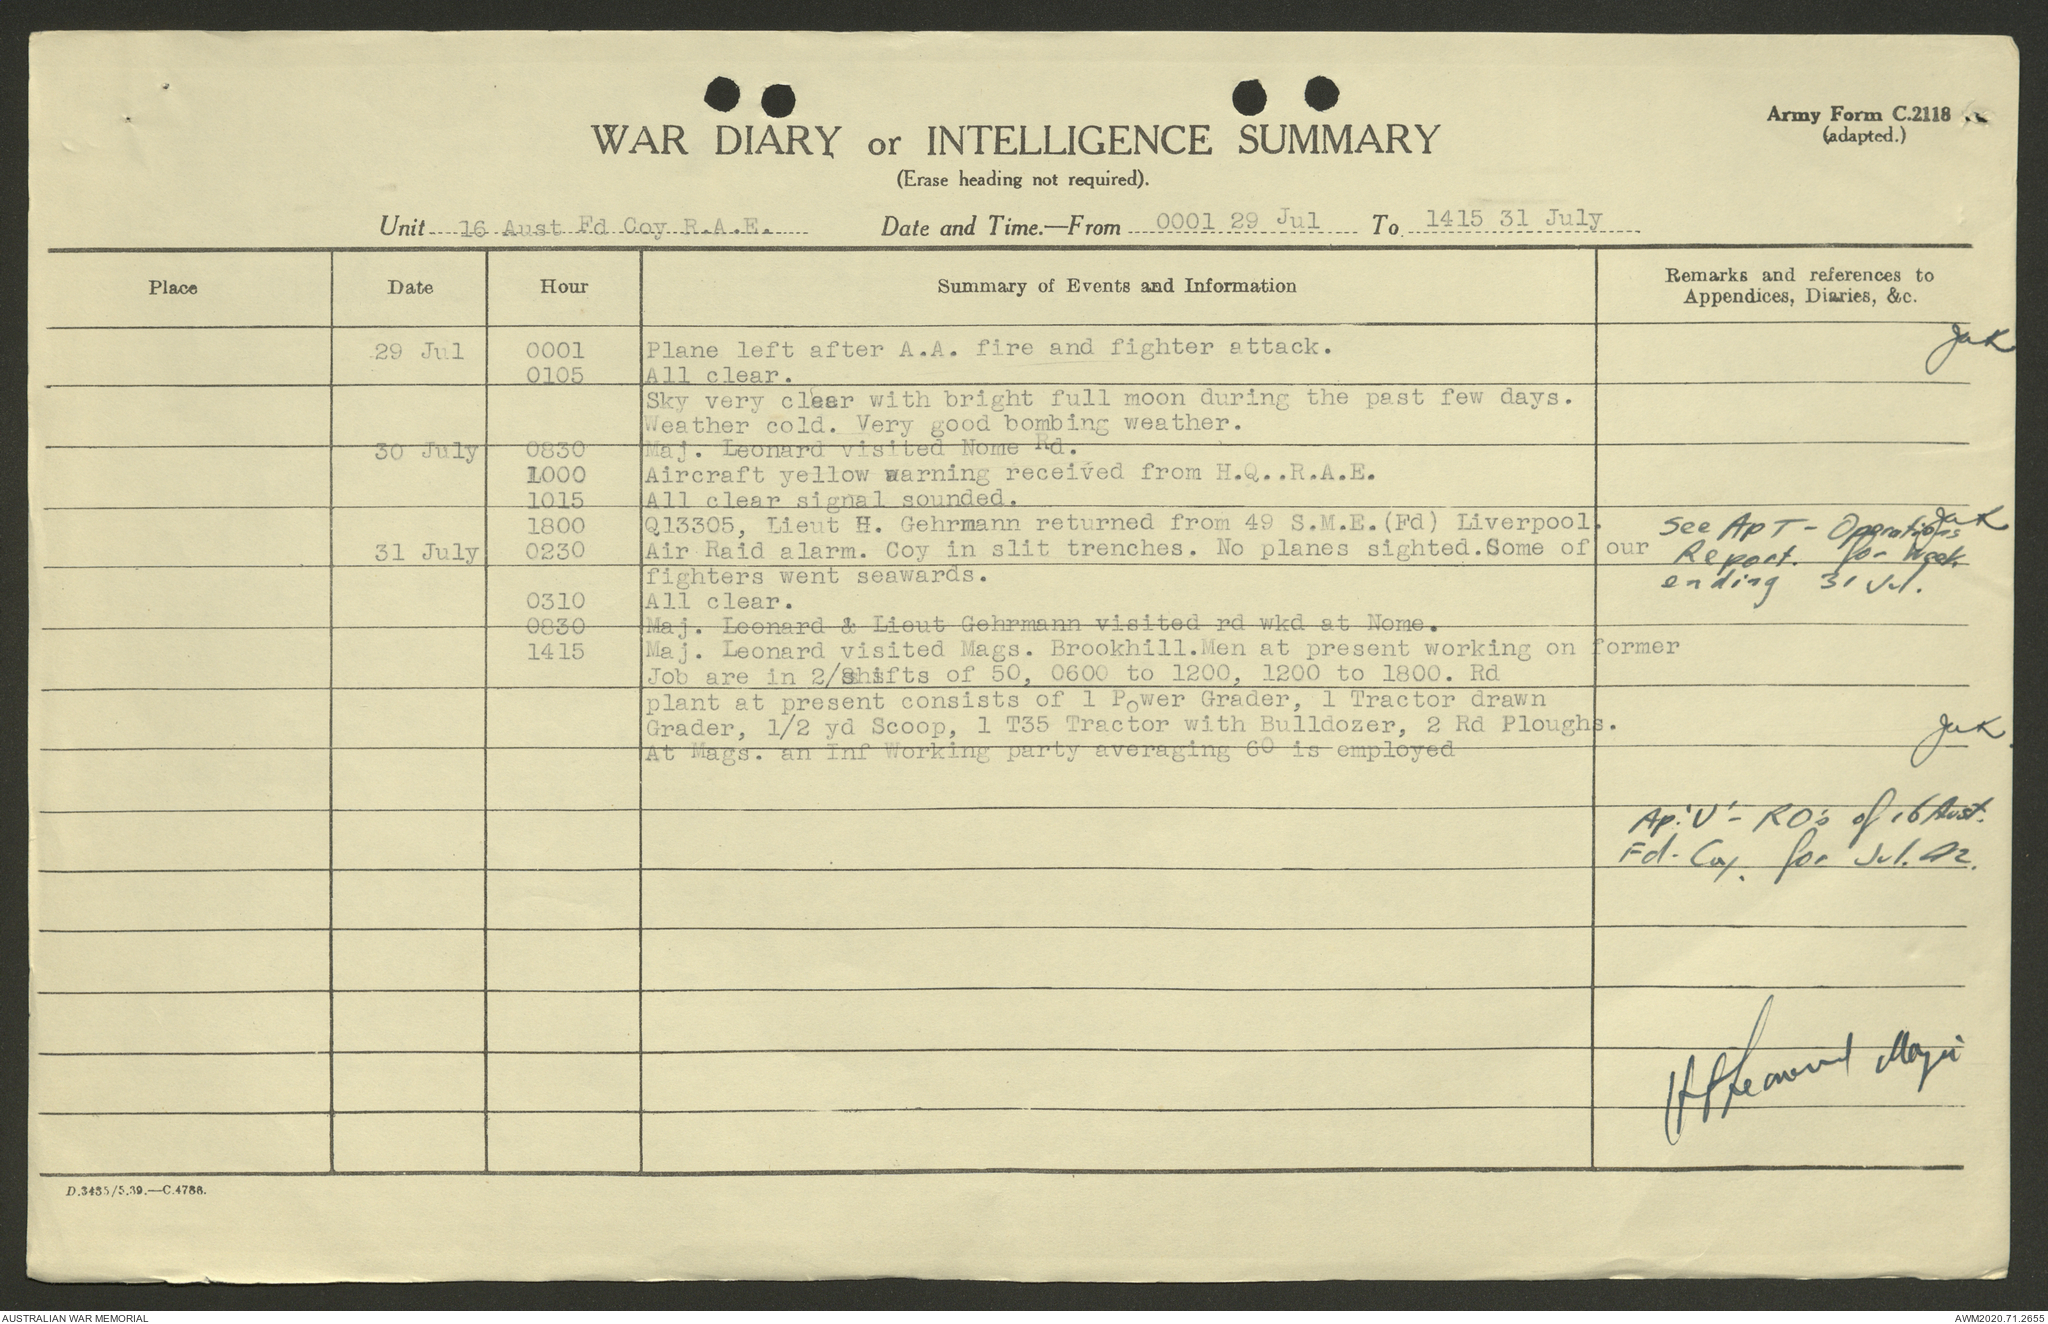 Army Form C.2118
(adapted.)
WAR DIARY or INTELLIGENCE SUMMARY
(Erase heading not required).
Unit 16 Aust Fd Coy R.A.E. Date and Time.—From 0001 29 Jul To 1415 31 July
Place Date Hour Summary of Events and Information Remarks and references to
Appendices, Diaries, &c.
29 Jul 0001 Plane left after A.A. fire and fighter attack. JuK
0105 All clear.
Sky very clear with bright full moon during the past few days.
Weather cold. Very good bombing weather.
30 July 0830 Maj. Leonard visited Nome Rd.
1000 Aircraft yellow warning received from H.Q..R.A.E.
1015 All clear signal sounded.
1800 Q13305, Lieut H. Gehrmann returned from 49 S.M.E.(Fd) Liverpool. JuK
See Ap T - Operations
31 July 0230 Air Raid alarm. Coy in slit trenches. No planes sighted.Some of our Report. for Week
fighters went seawards. ending 31 Jul.
0310 All clear.
0830 Maj. Leonard & Lieut Gehrmann visited rd wkd at Nome.
1415 Maj. Leonard visited Mags. Brookhill.Men at present working on former
Job are in 2/Shifts of 50, 0600 to 1200, 1200 to 1800. Rd
plant at present consists of 1 Power Grader, 1 Tractor drawn
Grader, 1/2 yd Scoop, 1 T35 Tractor with Bulldozer, 2 Rd Ploughs.
At Mags. an Inf Working party averaging 60 is employed JuK.
Ap. 'U' - RO's of 16 Aust.
Fd. Coy. for Jul. 42.
Leonard Major
D.3435/5.39.—C.4788.
AUSTRALIAN WAR MEMORIAL AWM2020.71.2655